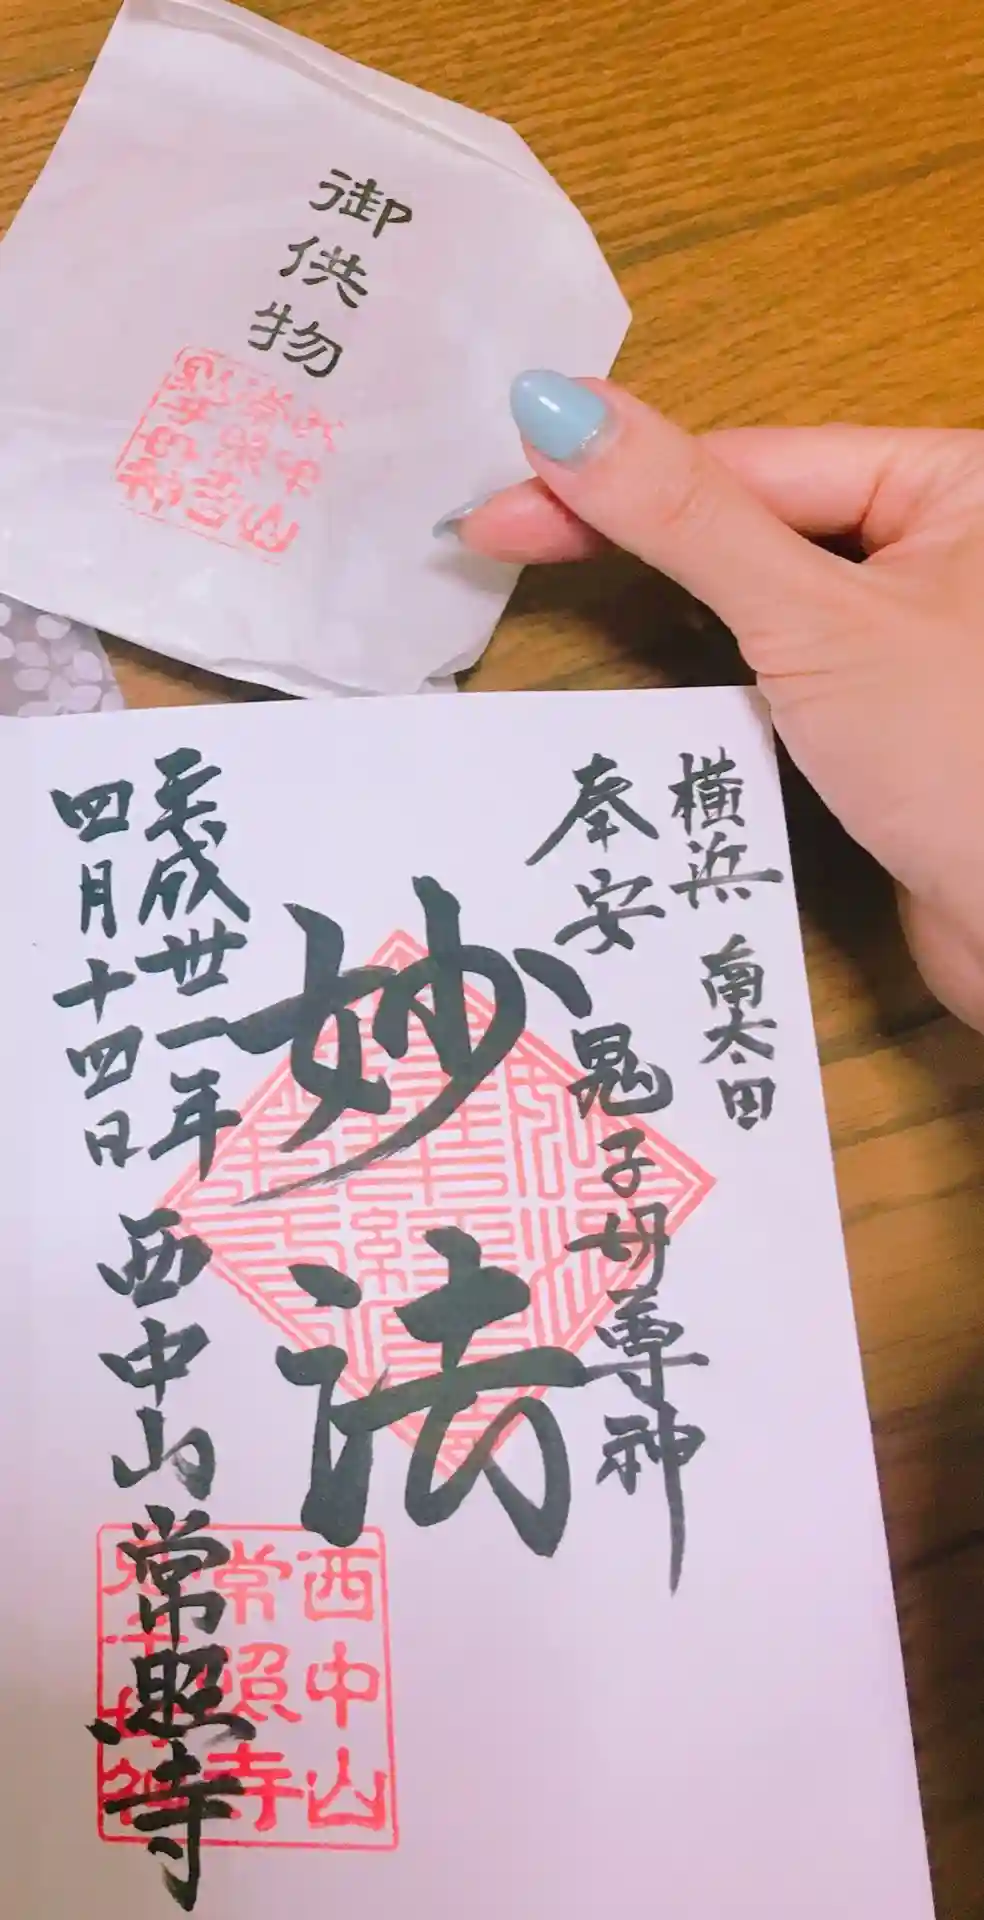 御供物
横浜 南太田
奉安 鬼子母尊神
妙法
平成丗一年
四月十四日
西中山常照寺
西中山
常照寺